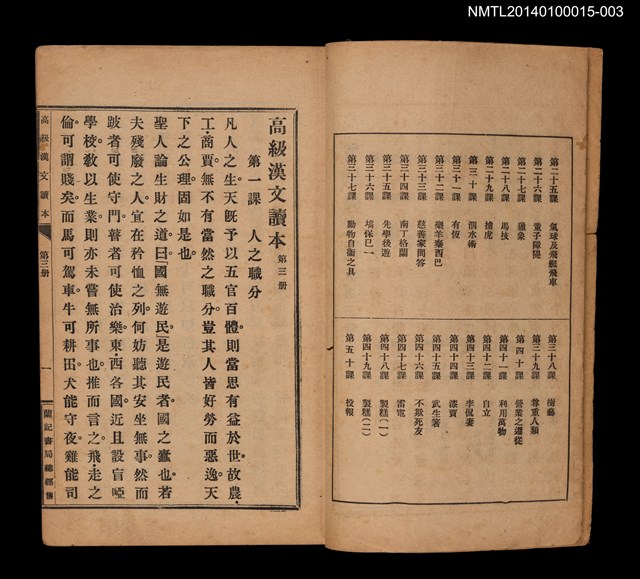 NMTL20140100015-003
第二十五課 氣球及飛艇飛車
第二十六課 童子障隄
第二十七課 馴象
第二十八課 馬技
第二十九課 捕虎
第三十課 泅水術
第三十一課 有恆
第三十二課 樂羊秦西巴
第三十三課 慈善家問答
第三十四課 南丁格蘭
第三十五課 先學後遊
第三十六課 塙保巳一
第三十七課 動物自衛之具
第三十八課 樹藝
第三十九課 尊重人類
第四十課 營業之遷徙
第四十一課 利用萬物
第四十二課 自立
第四十三課 李侃妻
第四十四課 漆賈
第四十五課 武生署
第四十六課 不欺死友
第四十七課 雷電
第四十八課 製糕(一)
第四十九課 製糕(二)
第五十課 投報
高級漢文讀本 第三册
第一課 人之職分
凡人之生。天旣予以五官百體。則當思有益於世。故農
工商賈。無不有當然之職分。豈其人皆好勞而惡逸。天
下之公理。固如是也。
聖人論生財之道。曰「國無遊民」。是遊民者。國之蠹也。若
夫殘廢之人。宜在矜恤之列。何妨聽其安坐無事。然而
跛者可使守門。瞽者可使治樂。東西各國。近且設盲啞
學校。敎以生業。則亦未嘗無所事也。推而言之。飛走之
倫。可謂賤矣。而馬可駕車。牛可耕田。犬能守夜。雞能司
高級漢文讀本
第三册
一
蘭記書局總經售